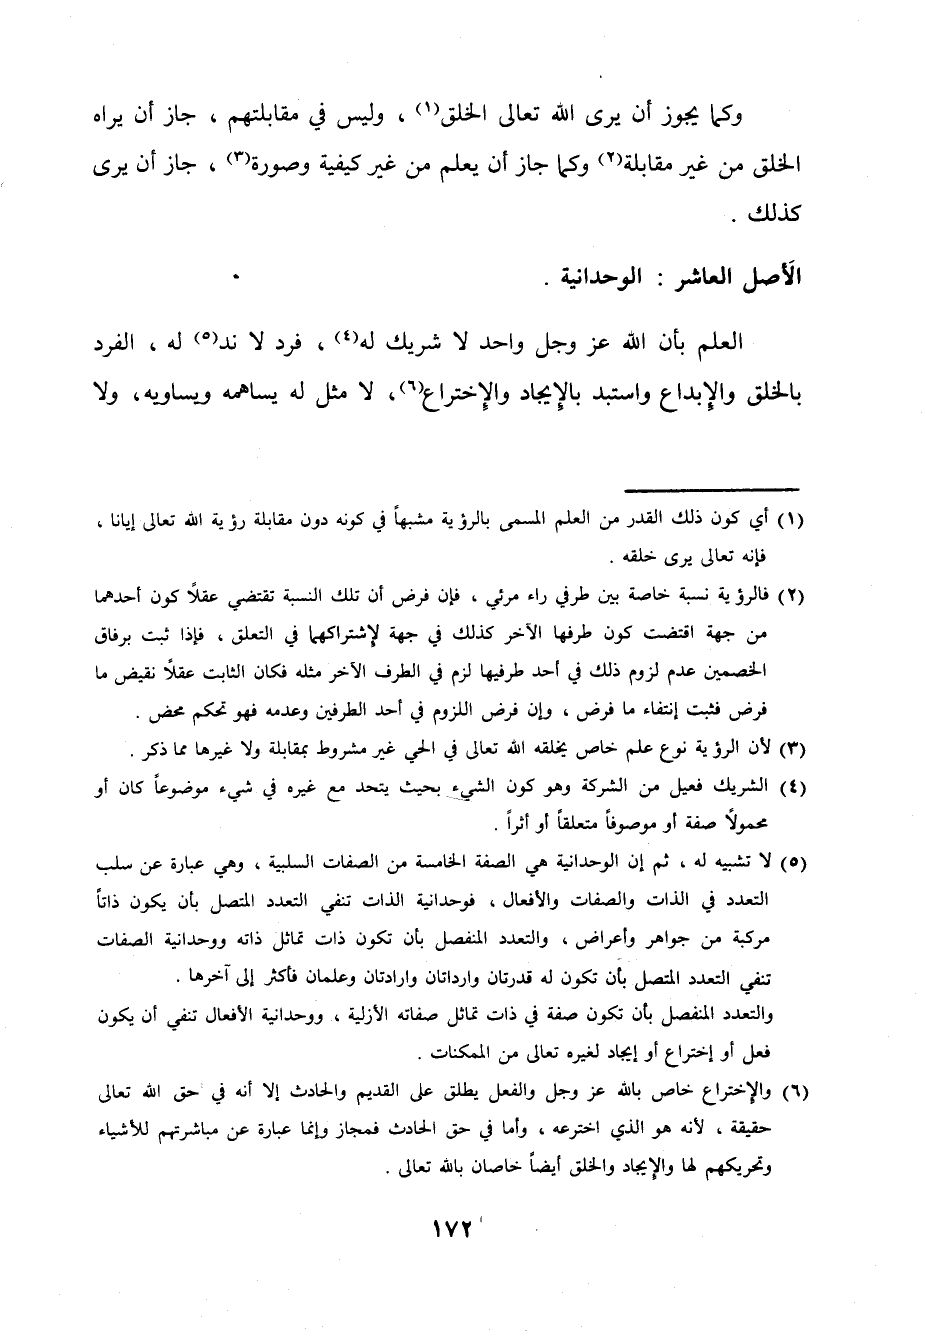 وكما يجوز أن يرى الله تعالى الخلق(١) ، وليس في مقابلتهم ، جاز أن يراه
الخلق من غير مقابلة(٢) وكما جاز أن يعلم من غير كيفية وصورة(٣) ، جاز أن يرى
كذلك .
الَأصل العاشر : الوحدانية .
العلم بأن الله عز وجل واحد لا شريك له(٤) ، فرد لا ند(٥) له ، الفرد
بالخلق والإبداع واستبد بالإيجاد والإختراع(٦)، لا مثل له يساهمه ويساويه، ولا
(١) أي كون ذلك القدر من العلم المسمى بالرؤية مشبهاً في كونه دون مقابلة رؤية الله تعالى إيانا ،
فإنه تعالى يرى خلقه .
(٢) فالرؤية نسبة خاصة بين طرفي راء مرئي ، فإن فرض أن تلك النسبة تقتضي عقلاً كون أحدهما
من جهة اقتضت كون طرفها الآخر كذلك في جهة لإشتراكهما في التعلق ، فإذا ثبت برفاق
الخصمين عدم لزوم ذلك في أحد طرفيها لزم في الطرف الآخر مثله فكان الثابت عقلاً نقيض ما
فرض فثبت إنتفاء ما فرض ، وإن فرض اللزوم في أحد الطرفين وعدمه فهو تحكم محض .
(٣) لأن الرؤية نوع علم خاص يخلقه الله تعالى في الحي غير مشروط بمقابلة ولا غيرها مما ذكر .
(٤) الشريك فعيل من الشركة وهو كون الشيء بحيث يتحد مع غيره في شيء موضوعاً كان أو
محمولاً صفة أو موصوفاً متعلقاً أو أثراً .
(٥) لا تشبيه له ، ثم إن الوحدانية هي الصفة الخامسة من الصفات السلبية ، وهي عبارة عن سلب
التعدد في الذات والصفات والأفعال ، فوحدانية الذات تنفي التعدد المتصل بأن يكون ذاتاً
مركبة من جواهر وأعراض ، والتعدد المنفصل بأن تكون ذات تماثل ذاته ووحدانية الصفات
تنفي التعدد المتصل بأن تكون له قدرتان وارداتان وارادتان وعلمان فأكثر إلى آخرها .
والتعدد المنفصل بأن تكون صفة في ذات تماثل صفاته الأزلية ، ووحدانية الأفعال تنفي أن يكون
فعل أو إختراع أو إيجاد لغيره تعالى من الممكنات .
(٦) والإختراع خاص بالله عز وجل والفعل يطلق على القديم والحادث إلا أنه في حق الله تعالى
حقيقة ، لأنه هو الذي اخترعه ، وأما في حق الحادث فمجاز وإنما عبارة عن مباشرتهم للأشياء
وتحريكهم لها والإيجاد والخلق أيضاً خاصان بالله تعالى .
١٧٢